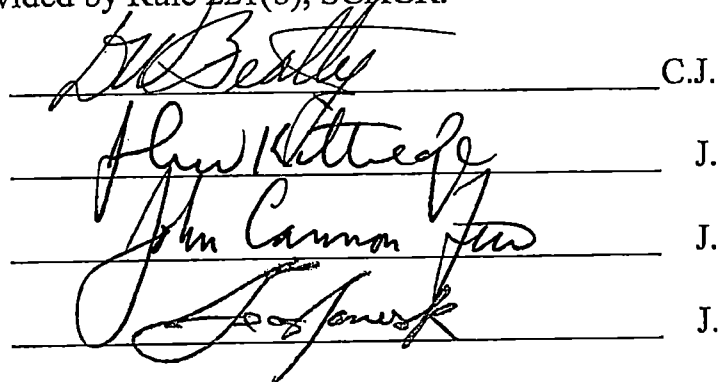 vided by Rule 221(b), SCACR.
DW Beatty C.J.
John Kittredge J.
John Cannon Few J.
James Jr J.